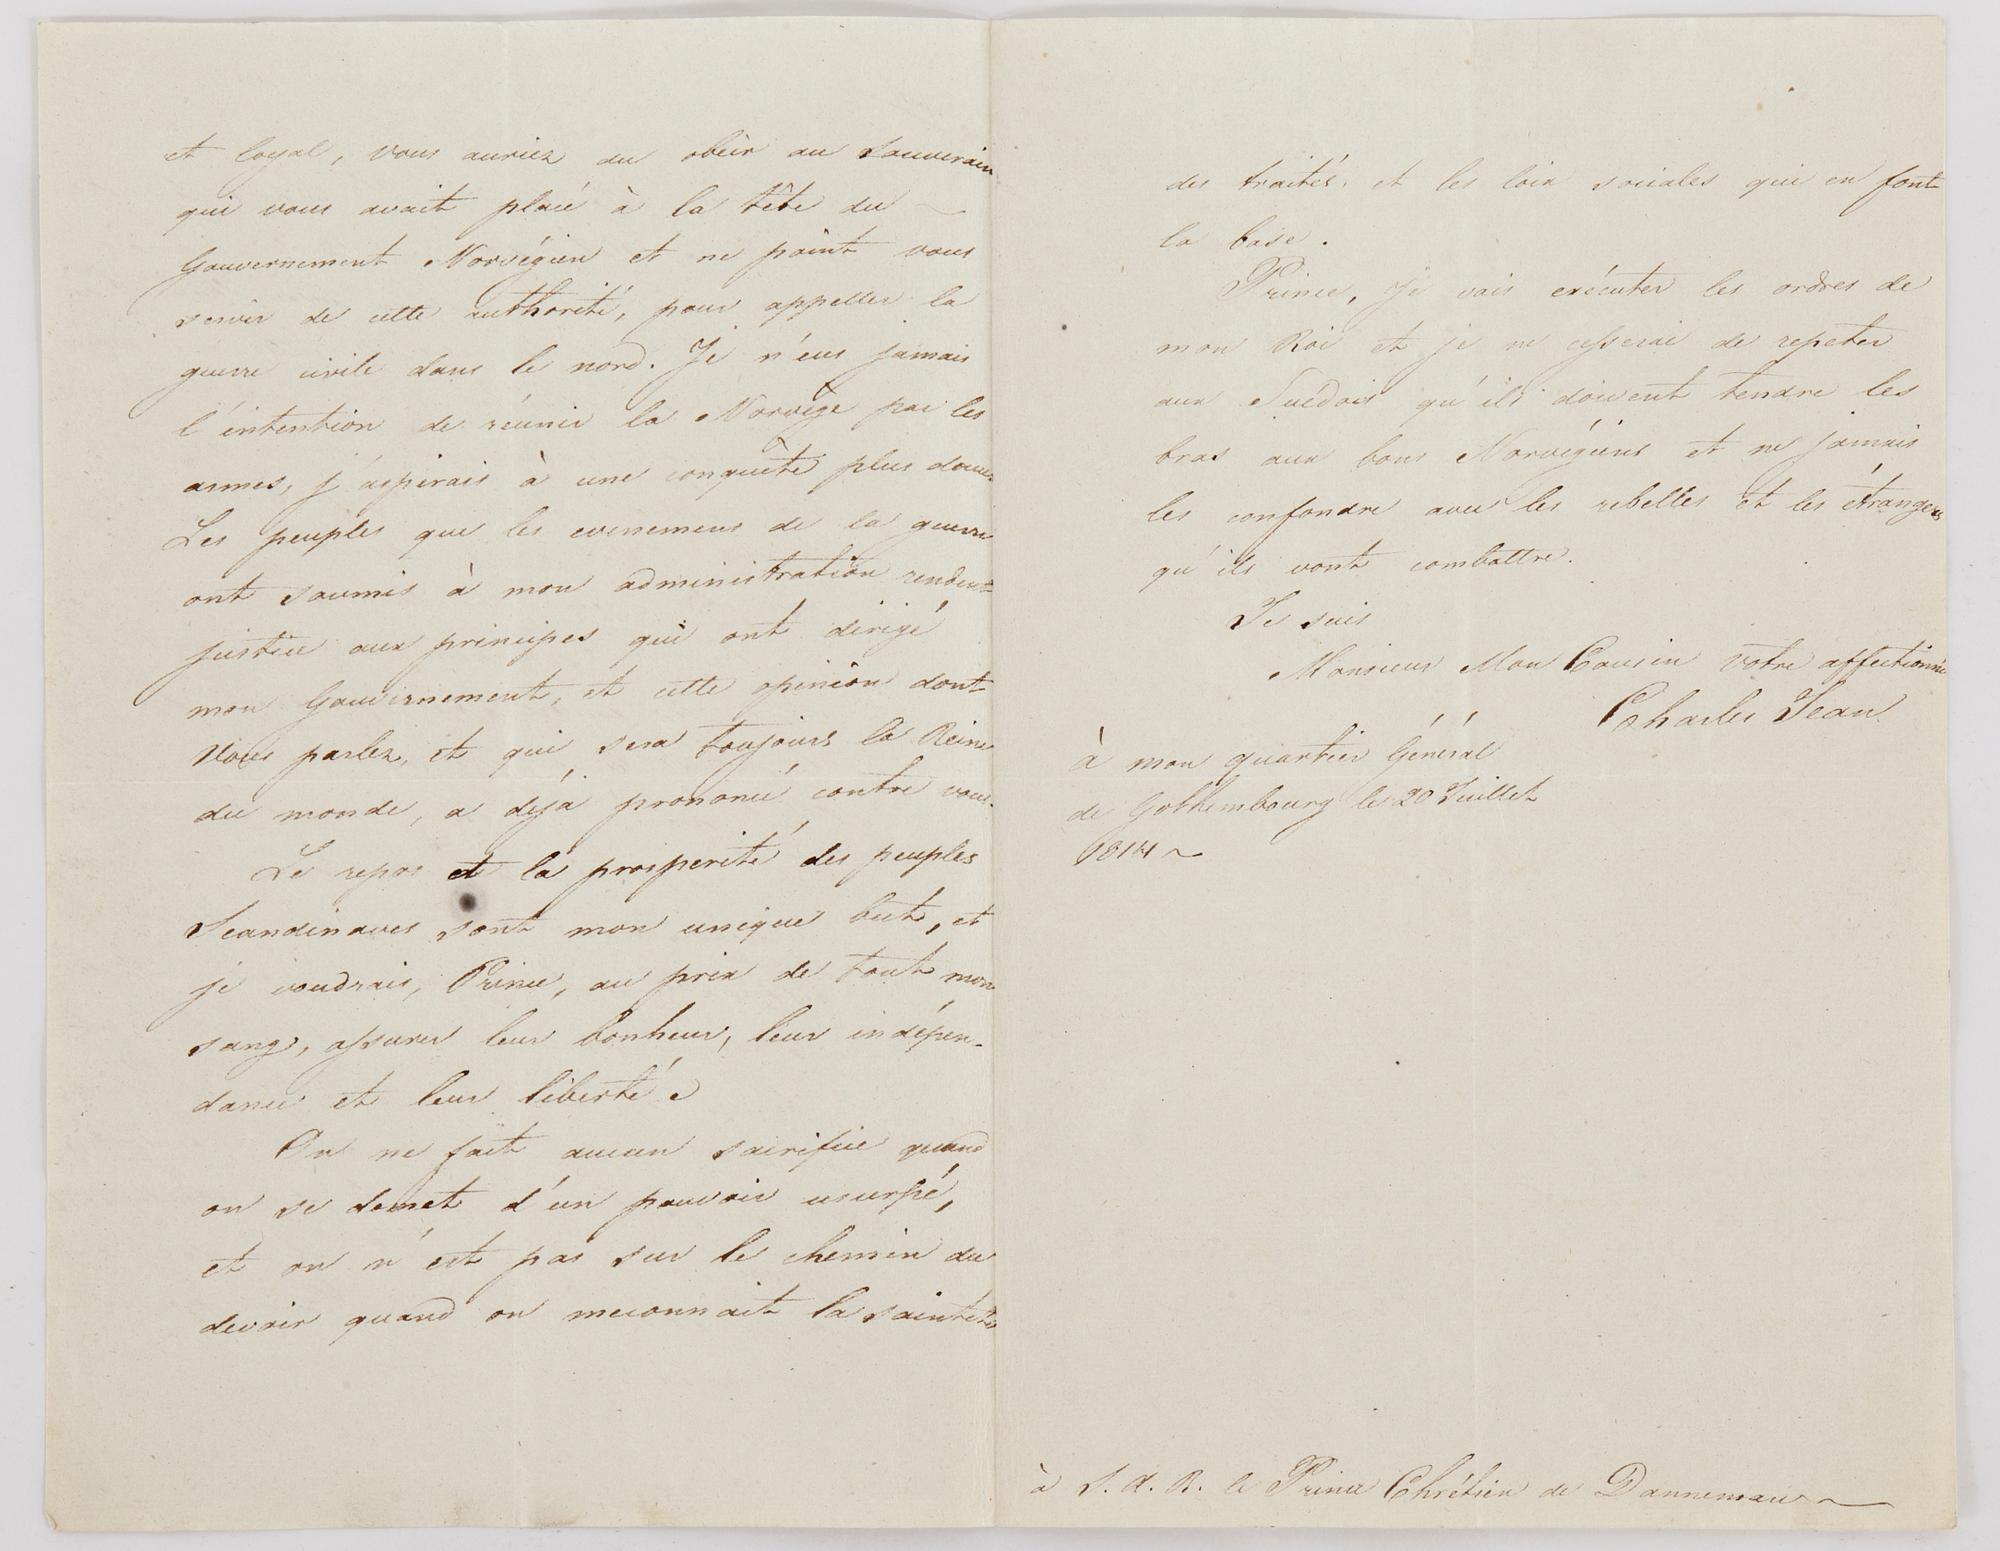 et loyal, vous auriez du obèir au Souverain
qui vous avait placé à la tête du
Gouvernement Norvégien et ne point vous
servir de cette authorité, pour appeller la
guerre civile dans le nord. Je n'eus jamais
l'intention de réunir la Norvège par les
armes, j'aspirais à une conquête plus douce
Les peuples que les evenemens de la guerre
ont soumis à mon administration rendent
justice aux principes qui ont dirigé
mon Gouvernement, et cette opinion dont
Vous parlez, et qui sera toujours la Reine
du monde, a déjà prononcé contre vous.
Le repos et la prosperité des peuples
Scandinaves sont mon unique but, et
je voudrais, Prince, au prix de tout mon
sang, assurer leur bonheur, leur indépen-
dance et leur liberté.
On ne fait aucun sacrifice quand
on se demet d'un pouvoir usurpé,
et on n'est pas sur le chemin du
devoir quand on meconnait la sainteté
des traités, et les loix sociales qui en font
la base.
Prince, Je vais exécuter les ordres de
mon Roi et je ne cesserai de repeter
aux Suédois qu'ils doivent tendre les
bras aux bons Norvégiens et ne jamais
les confondre avec les rebelles et les étrangers
qu'ils vont combattre.
Je suis
Monsieur Mon Cousin Votre affectionné
Charles Jean
à mon quartier Général
de Gothembourg le 20 Juillet
1814
à S. A. R. le Prince Chrétien de Dannemarc